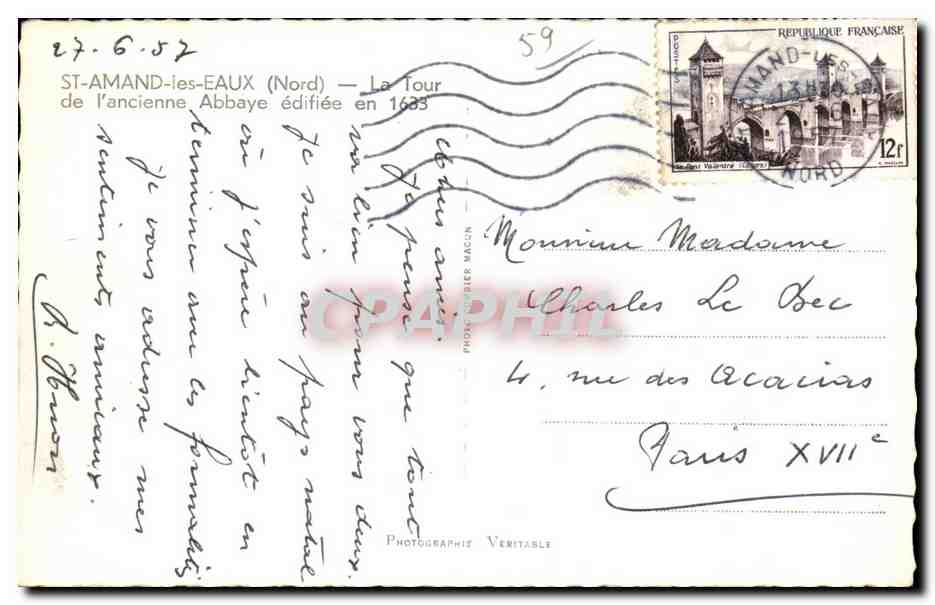 27.6.57
59
ST-AMAND-les-EAUX (Nord) — La Tour
de l'ancienne Abbaye édifiée en 1633
POSTES
REPUBLIQUE FRANÇAISE
Le Pont Valentré (Cahors)
12f
AMAND-LES-
13H
NORD
Chers amis.
Je pense que tout
va bien pour vous deux.
Je suis au pays natal
où j'espère bientôt en
terminer avec les formalités
Je vous adresse mes
sentiments amicaux.
PHOTO COMBIER MACON
CPAPHIL
Monsieur Madame
Charles Le Bec
4, rue des Acacias
Paris XVIIe
PHOTOGRAPHIE VÉRITABLE